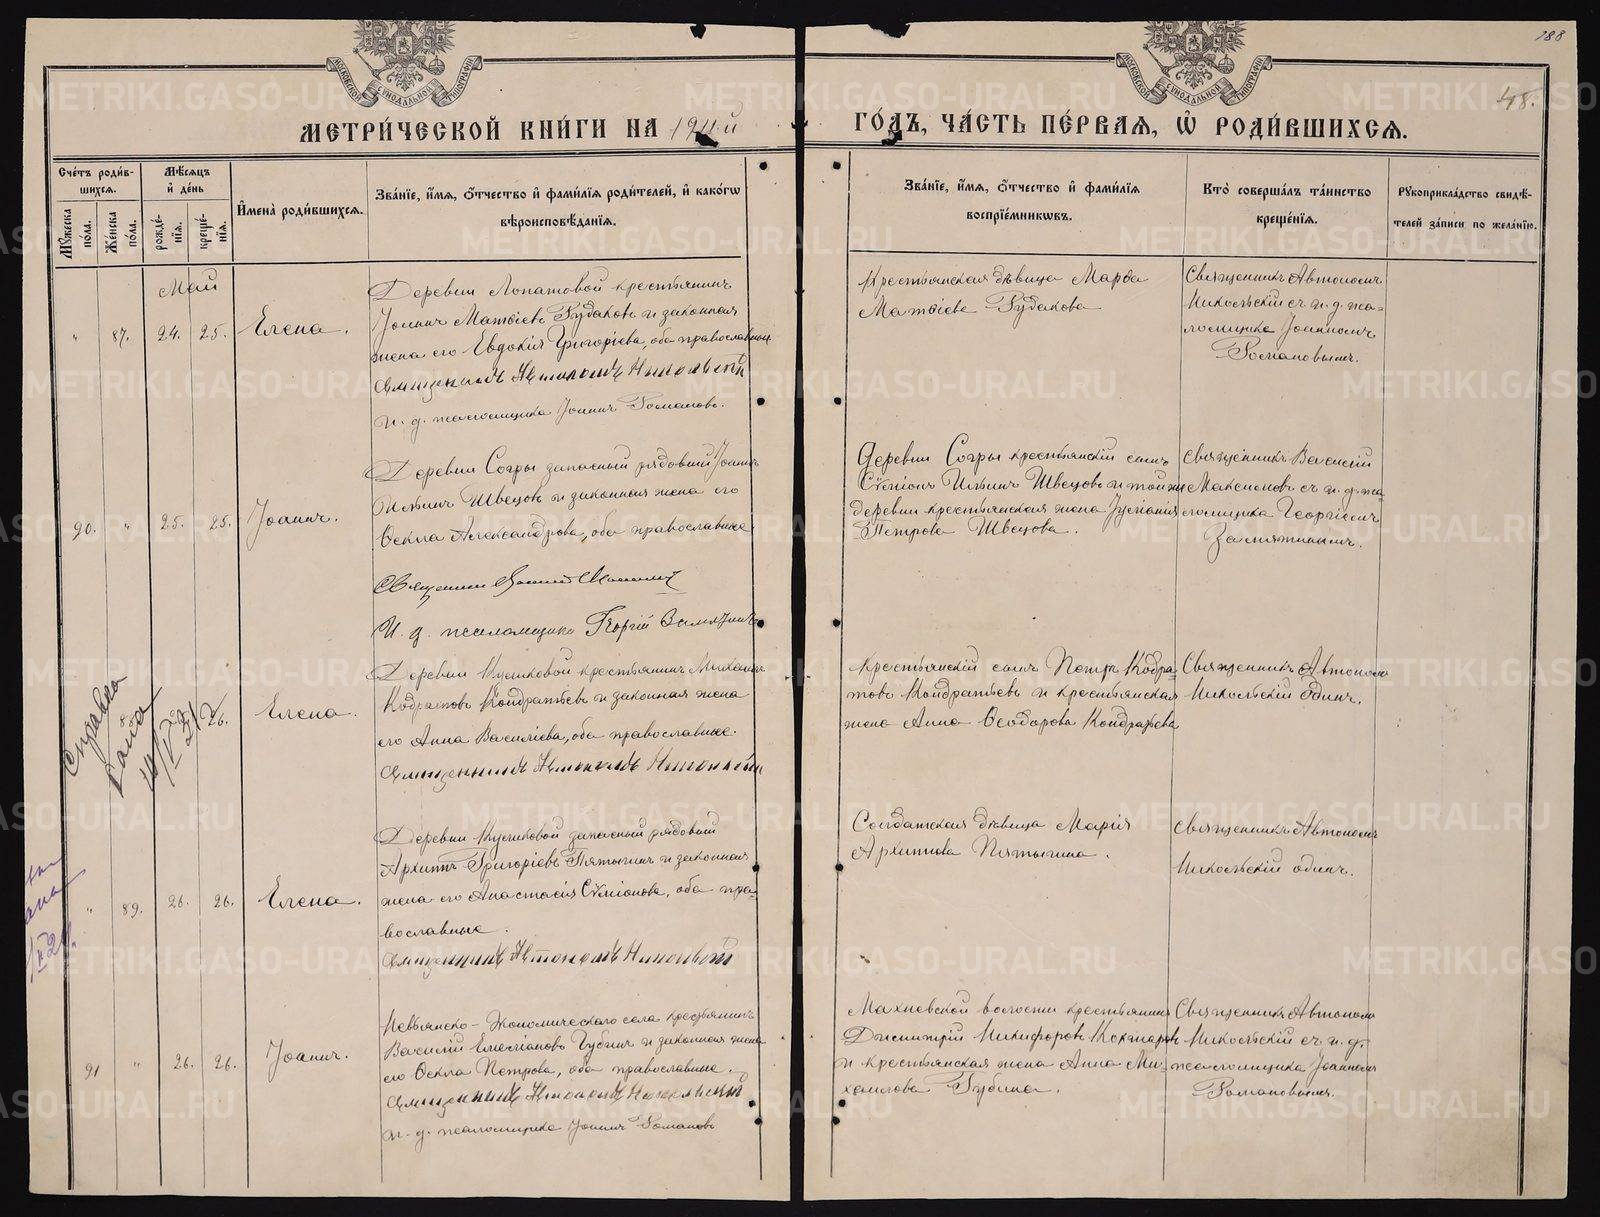 188
48.
МОСКОВСКОЙ СѴНОДАЛЬНОЙ ТИПОГРАФІИ
МОСКОВСКОЙ СѴНОДАЛЬНОЙ ТИПОГРАФІИ
МЕТРИ́ЧЕСКОЙ КНИ́ГИ НА 1911й
ГО́ДЪ, ЧА́СТЬ ПЕ́РВАЯ, Ѡ РОДИ́ВШИХСЯ.
Сче́тъ роди́в-
шихся.
Мѣ́сяцъ
и де́нь
Мꙋ́жеска по́ла.
Же́нска по́ла.
рожде́-
нія.
креще́-
нія.
И҆мена̀ роди́вшихся.
Зва́нїе, и҆́мя, ѻ҆́тчество и҆ фами́лїя роди́телей, и҆ како́гѡ
вѣроисповѣ́данїя.
Зва́нїе, и҆́мя, ѻ҆́тчество и҆ фами́лїя
воспрїе́мникѡвъ.
Кто̀ соверша́лъ та́инство
креще́нїя.
Рꙋкоприкла́дство свидѣ́-
телей за́писи по жела́нїю.
Май
" 87. 24. 25. Елена.
Деревни Лопатовой крестьянинъ
Іоаннъ Матѳіевъ Рудаковъ и законная
жена его Евдокія Григоріева, оба православные
Священникъ Автономъ Никольскій
и. д. псаломщика Іоаннъ Романовъ.
Крестьянская дѣвица Марѳа
Матѳіева Рудакова
Священникъ Автономъ
Никольскій съ и. д. пса=
ломщика Іоанномъ
Романовымъ.
90. " 25. 25. Іоаннъ.
Деревни Согры запасный рядовый Іоаннъ
Ильинъ Швецовъ и законная жена его
Ѳекла Александрова, оба православные
Священникъ Василій Максимовъ
И. д. псаломщика Георгій Замятинъ
Деревни Согры крестьянскій сынъ
Сѵмеонъ Ильинъ Швецовъ и той же
деревни крестьянская жена Іустинія
Петрова Швецова.
Священникъ Василій
Максимовъ съ и. д. пса
ломщика Георгіемъ
Замятинымъ.
Справка
дана
88 26. Елена.
Деревни Кусиковой крестьянинъ Михаилъ
Кодратовъ Кондратьевъ и законная жена
его Анна Василіева, оба православные.
Священникъ Автономъ Никольскій
Крестьянскій сынъ Петръ Кодра=
товъ Кондратьевъ и крестьянская
жена Анна Ѳеодорова Кондратьева
Священникъ Автономъ
Никольскій одинъ.
" 89. 26. 26. Елена.
Деревни Кусиковой запасный рядовый
Архиппъ Григоріевъ Пятыгинъ и законная
жена его Анастасія Сѵмеонова, оба пра=
вославные.
Священникъ Автономъ Никольскій
Солдатская дѣвица Марія
Архиппова Пятыгина.
Священникъ Автономъ
Никольскій одинъ.
91 " 26. 26. Іоаннъ.
Невьянско-Экономическаго села крестьянинъ
Василій Емеліановъ Губинъ и законная жена
его Ѳекла Петрова, оба православные.
Священникъ Автономъ Никольскій
и. д. псаломщика Іоаннъ Романовъ
Махневской волости крестьянинъ
Димитрій Никифоровъ Кокшаровъ
и крестьянская жена Анна Ми=
хаилова Губина.
Священникъ Автономъ
Никольскій съ и. д.
псаломщика Іоанномъ
Романовымъ.
METRIKI.GASO-URAL.RU